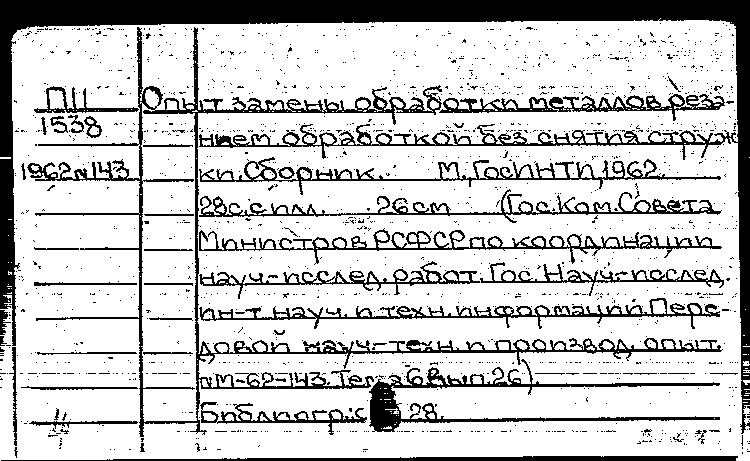 ПII Опыт замены обработки металлов реза-
1538
нием обработкой без снятия струж
1962 N 143 ки. Сборник. М., ГосИНТИ, 1962.
28с. с илл. 26 см (Гос. Ком. Совета
Министров РСФСР по координации
науч.-исслед. работ. Гос. Науч.-исслед.
ин-т науч. и техн. информации. Пере-
довой науч.-техн. и производ. опыт.
№М-62-143. Тема 6 Вып. 26).
Библиогр.: с 28.